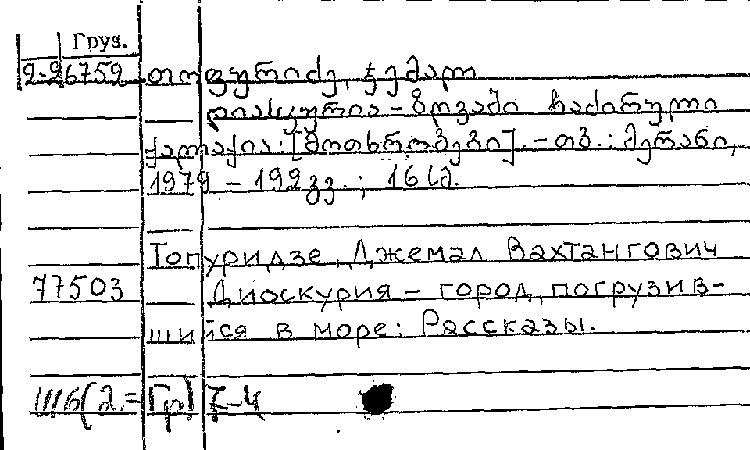 Груз.
2-26752 თოფურიძე, ჯემალ
დიასკურია - ზღვაში ჩაძირული
ქალაქია: [მოთხრობები]. - თბ.: მერანი,
1979 - 192 გვ.; 16 სმ.
Топуридзе, Джемал Вахтангович
77503 Диоскурия - город, погрузив-
шийся в море: Рассказы.
Ш6(2.=Гр)7-4